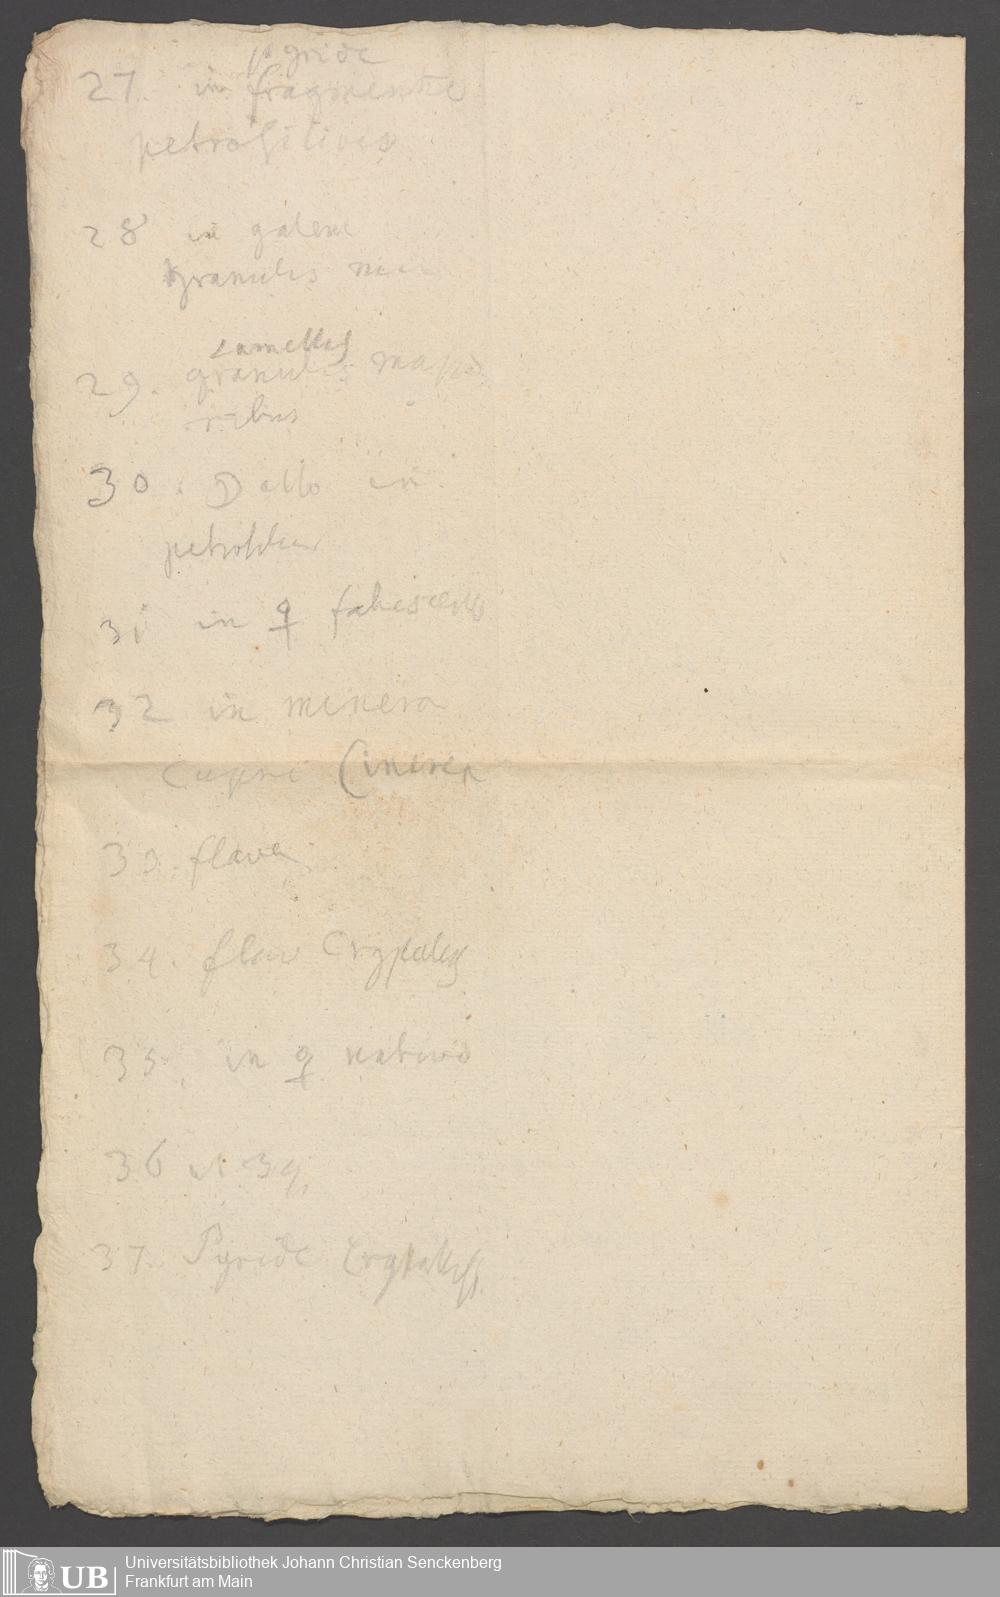 pyride
27. in fragmentis
petrosilicis
28 in galena
granulis
lamellas
29. granulis majo
ribus
30. D albo in
31 in ♀ fatiscens
32 in minera
Cupri Cinerea
33. flava
34. flav Crystallis
35. in ♀ nativo
36 ut 34,
37. Pyride Crystallis
Universitätsbibliothek Johann Christian Senckenberg
Frankfurt am Main
UB